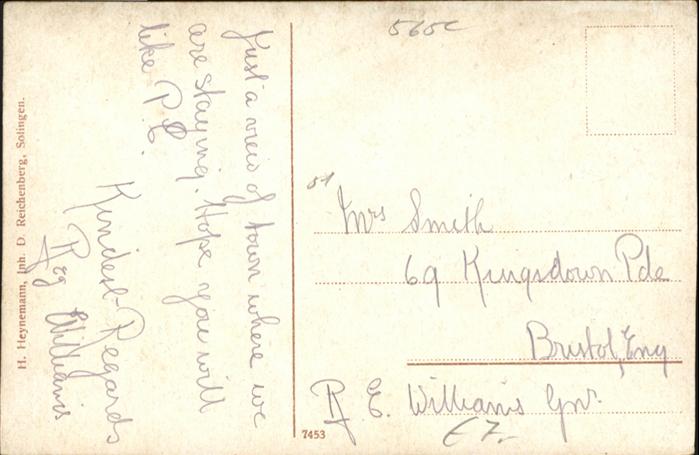 565c
Just a view of town where we
are staying. Hope you will
like P.C.
Kindest Regards
Reg Williams
H. Heynemann, Inh. D. Reichenberg, Solingen.
Mrs Smith
69 Kingsdown Pde
Bristol, Eng
R E. Williams Gnr.
£7.
7453